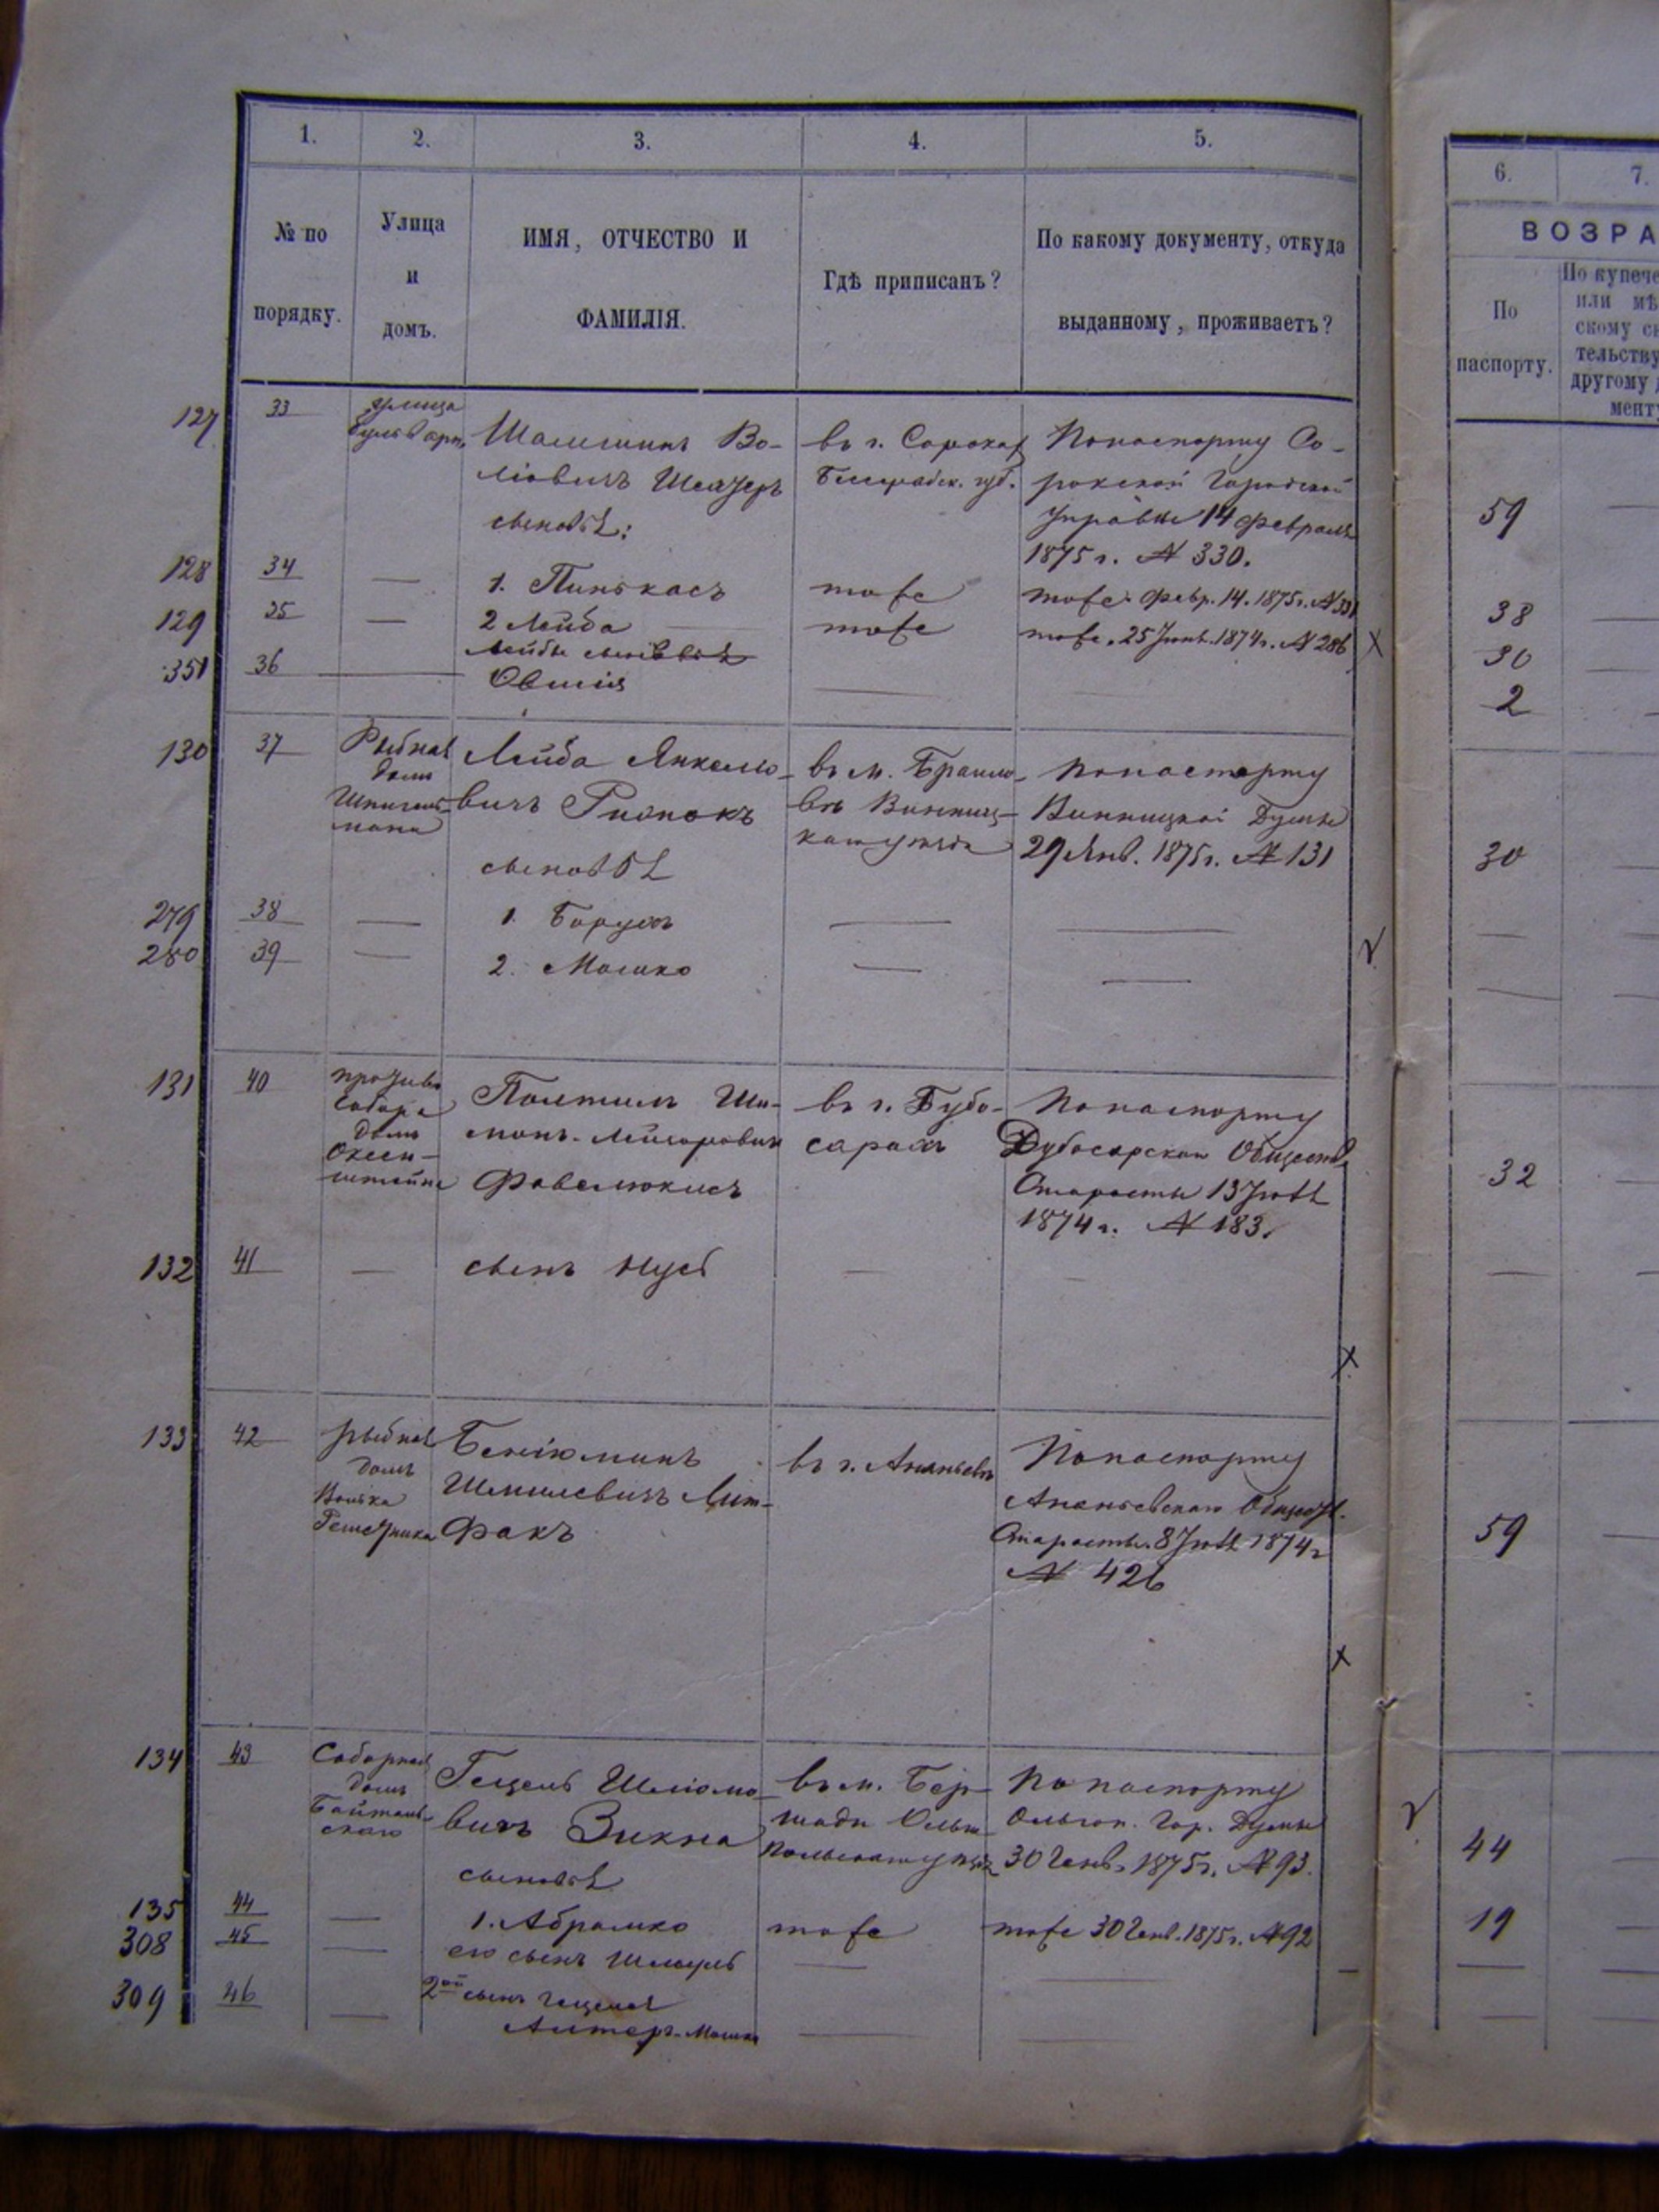 1.
2.
3.
4.
5.
№ по
порядку.
Улица
и
домъ.
ИМЯ, ОТЧЕСТВО И
ФАМИЛІЯ.
Гдѣ приписанъ?
По какому документу, откуда
выданному, проживаетъ?
6.
7.
ВОЗРА
По
паспорту.
По купече
или мѣ
скому св
тельству
другому д
мент
127
33
улица
Во-
ліовичъ
сыновья:
въ г. Сорокахъ
Бессарабск. губ.
По паспорту Со-
рокской Городской
Управы 14 Февраля
1875 г. № 330.
59
128
34
1. Пинькасъ
тоже
тоже. Февр. 14. 1875 г. № 331
38
129
35
2 Лейба
тоже
тоже. 25 1874 г. № 286
30
351
36
Лейбы
Овшія
2
130
37
Рыбная
домъ
Лейба Янкелио-
вичъ
сыновья
въ м. Браило-
вѣ Винниц-
ка уѣзда
По паспорту
Винницкой Думы
29 Янв. 1875 г. № 131
30
279
38
1. Борухъ
280
39
2. Мошко
131
40
противъ
Собора
домъ
Оксен-
штейна
Ши-
монъ-
въ г. Дубо-
сарахъ
По паспорту
Дубосарскаго Обществ.
Старосты 13
1874 г. № 183.
32
132
41
сынъ Нусъ
133
42
рыбная
домъ
Беніюминъ
Шмилевичъ Лит-
факъ
въ г. Ананьевѣ
По паспорту
Ананьевскаго Общест.
Старосты. 8 1874 г
№ 426
59
134
43
Соборная
домъ
Гецель Шліомо-
вичъ Зикна
сыновья
въ м. Бер-
шади Ольго-
польскаго уѣзда
По паспорту
Ольгоп. Гор. Думы
30 Генв. 1875 г. № 93.
44
135
44
1. Абрамко
тоже
тоже 30 Генв. 1875 г. № 92
19
308
45
его сынъ Шмуль
309
46
2ой сынъ Гецеля
Алтеръ-Мошко